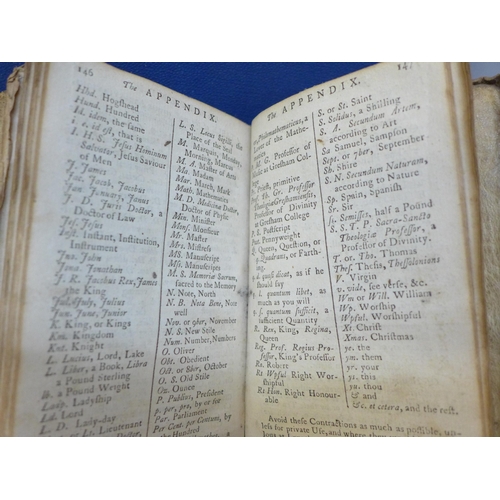 146
The APPENDIX.
Hhd. Hogshead
Hund. Hundred
Id. idem, the same
i. e. id est, that is
I. H. S. Jesus Hominum
Salvator, Jesus Saviour
of Men
J. James
Jac. Jacob, Jacobus
Jan January, Janus
J. D. Juris Doctor, a
Doctor of Law
Jes. Jesus
Inst. Instant, Institution,
Instrument
Jno. John
Jona. Jonathan
J. R. Jacobus Rex, James
the King
Jul. July, Julius
Jun. June, Junior
K. King, or Kings
Km. Kingdom
Knt. Knight
L. Lucius, Lord, Lake
L. Liber, a Book, Libra
a Pound Sterling
lb. a Pound Weight
Ladp. Ladyship
Ld. Lord
L. D. Lady-day
Lieutenant
L. S. Locus Sigilli, the
Place of the Seal
M. Marquis, Monday,
Morning,
M. A. Master of Arts
Ma. Madam
Mar. March, Mark
Math. Mathematics
M. D. Medicinæ Doctor,
Doctor of Physic
Min. Minister
Monf. Monsieur
Mr. Master
Mrs. Mistress
MS. Manuscript
MSS. Manuscripts
M. S. Memoriæ Sacrum,
sacred to the Memory
N. Note, North
N. B. Nota Bene, Note
well
Nov. or 9ber, November
N. S. New Style
Num. Number, Numbers
O. Oliver
Obt. Obedient
Oct. or 8br, October
O. S. Old Stile
Oz. Ounce
P. Publius, President
p. per, pro, by or for
Par. Parliament
Per Cent. per Centum, by
the Hundred
147
The APPENDIX.
Philomathematicus, a
Lover of the Mathe-
matics
M. G. Professor of
Music at Gresham Coll.
Priest, primitive
Th. Gr. Professor
Theologiæ Greshamensis,
Professor of Divinity
at Gresham College
P. S. Postscript
Pwt. Pennyweight
Q. Queen, Question, or
q. Quadrans, or Farth-
ing.
q. d. quasi dicat, as if he
should say
q. l. quantum libet, as
much as you will
q. s. quantum sufficit, a
sufficient Quantity
R. Rex, King, Regina,
Queen
Reg. Prof. Regius Pro-
fessor, King's Professor
Ro. Robert
Rt. Wpful. Right Wor-
shipful
Rt Hon. Right Honour-
able
S. or St. Saint
S. Solidus, a Shilling
S. A. Secundum Artem,
according to Art
Sa. Samuel, Sampson
Sept. or 7ber, September
Sh. Shire
S. N. Secundum Naturam,
according to Nature
Sp. Spain, Spanish
Sr. Sir
ss. Semissis, half a Pound
S. S. T. P. Sacro-Sanctæ
Theologiæ Professor, a
Professor of Divinity.
T. or Tho. Thomas
Thess. Thesis, Thessalonians
V. Virgin
v. vide, see verse, &c.
Wm or Will. William
Wp. Worship
Wpful. Worshipful
Xt. Christ
Xmas. Christmas
ye. the
ym. them
yr. your
ys. this
yu. thou
& and
&c. et cætera, and the rest.
Avoid these Contractions as much as possible, un-
less for private Use, and where